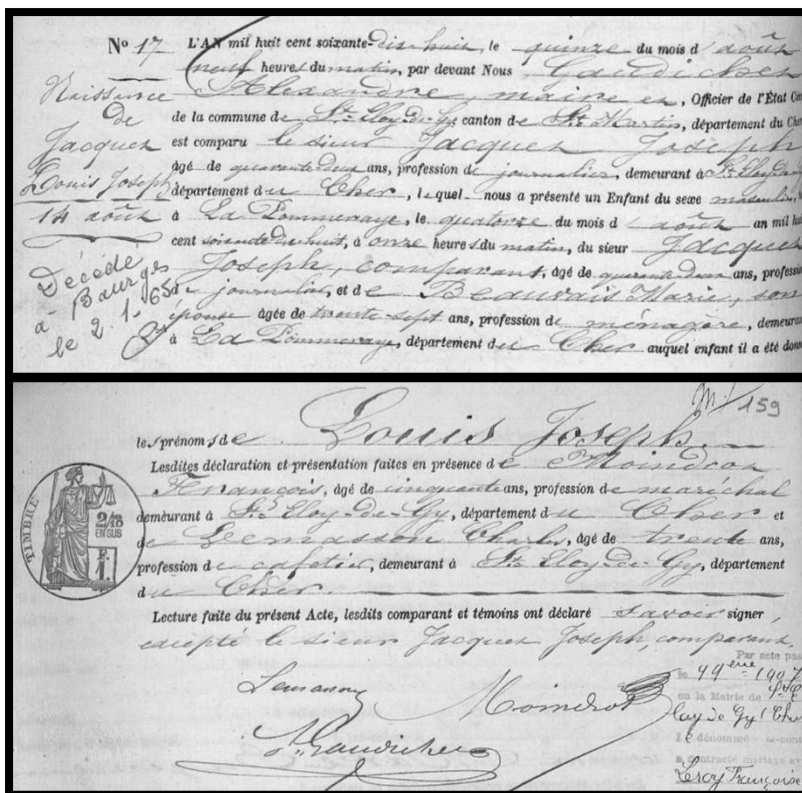 N° 17 L'AN mil huit cent soixante-dix huit, le quinze du mois d'août
neuf heures du matin, par devant Nous Gaudicher
Naissance Alexandre, maire et, Officier de l'État Civ
de de la commune de St Eloy-de-Gy canton de St Martin, département du Cher
Jacquet est comparu le sieur Jacquet Joseph
âgé de quarante deux ans, profession de journalier, demeurant à St Eloy de Gy
Louis Joseph département du Cher, lequel nous a présenté un Enfant du sexe masculin,
14 août à La Pommeraye, le quatorze du mois d'août an mil huit
cent soixante dix huit, à onze heures du matin, du sieur Jacquet
Décédé Joseph, comparant, âgé de quarante deux ans, profession
à Bourges de journalier, et de Beauvais Marie, son
le 2.1.65 épouse âgée de trente-sept ans, profession de ménagère, demeurant
à La Pommeraye, département du Cher auquel enfant il a été donné
159
les prénoms de Louis Joseph.
Lesdites déclaration et présentation faites en présence de Moindrot
François, âgé de cinquante ans, profession de maréchal
demeurant à St Eloy-de-Gy, département du Cher et
de Lemasson Charles, âgé de trente ans,
profession de cafetier, demeurant à St Eloy-de-Gy, département
du Cher.
TIMBRE
2/10
EN SUS
F.
1.
Lecture faite du présent Acte, lesdits comparant et témoins ont déclaré savoir signer,
excepté le sieur Jacquet Joseph, comparant.
Lemasson
Moindrot
A. Gaudicher
Par acte pas
le 1907
en la Mairie de St E
loy de Gy (Cher
le dénommé ci-con
a contracté mariage av
Leroy Françoise